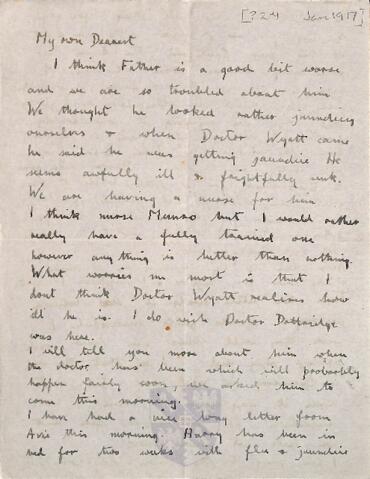 [?24 Jan 1917]
My own Dearest
I think Father is a good bit worse
and we are so troubled about him
We thought he looked rather jaundicey
ourselves & when Doctor Wyatt came
he said he was getting jaundice He
seems awfully ill & frightfully weak.
We are having a nurse for him
I think nurse Munro but I would rather
really have a fully trained one
however anything is better than nothing.
What worries me most is that I
dont think Doctor Wyatt realises how
ill he is. I do wish Doctor
was here.
I will tell you more about him when
the doctor has been which will probably
happen fairly soon, we asked him to
come this morning.
I have had a nice long letter from
this morning. Harry has been in
bed for two weeks with flu & jaundice